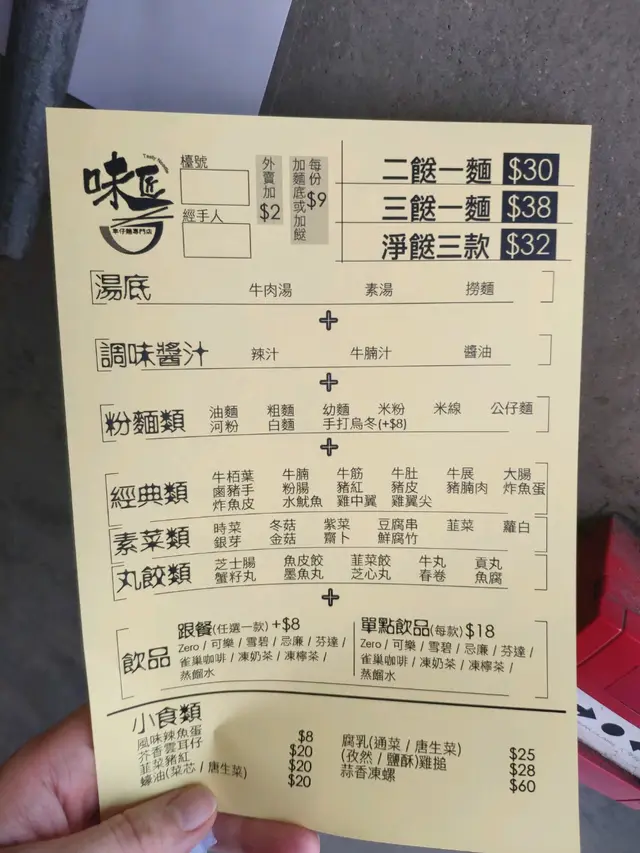 味匠
車仔麵專門店
檯號
經手人
外賣加 $2
每份 加麵底或加餸 $9
二餸一麵 $30
三餸一麵 $38
淨餸三款 $32
湯底 牛肉湯 素湯 撈麵
+
調味醬汁 辣汁 牛腩汁 醬油
+
粉麵類
油麵 粗麵 幼麵 米粉 米線 公仔麵
河粉 白麵 手打烏冬(+$8)
+
經典類
牛栢葉 牛腩 牛筋 牛肚 牛展 大腸
鹵豬手 粉腸 豬紅 豬皮 豬腩肉 炸魚蛋
炸魚皮 水魷魚 雞中翼 雞翼尖
素菜類
時菜 冬菇 紫菜 豆腐串 韮菜 蘿白
銀芽 金菇 齋卜 鮮腐竹
丸餃類
芝士腸 魚皮餃 韮菜餃 牛丸 貢丸
蟹籽丸 墨魚丸 芝心丸 春卷 魚腐
+
飲品
跟餐(任選一款) +$8
Zero / 可樂 / 雪碧 / 忌廉 / 芬達 /
雀巢咖啡 / 凍奶茶 / 凍檸茶 /
蒸餾水
單點飲品(每款) $18
Zero / 可樂 / 雪碧 / 忌廉 / 芬達 /
雀巢咖啡 / 凍奶茶 / 凍檸茶 /
蒸餾水
小食類
風味辣魚蛋 $8
芥香雲耳仔 $20
韮菜豬紅 $20
蠔油(菜芯 / 唐生菜) $20
腐乳(通菜 / 唐生菜) $25
(孜然 / 鹽酥)雞搥 $28
蒜香凍螺 $60